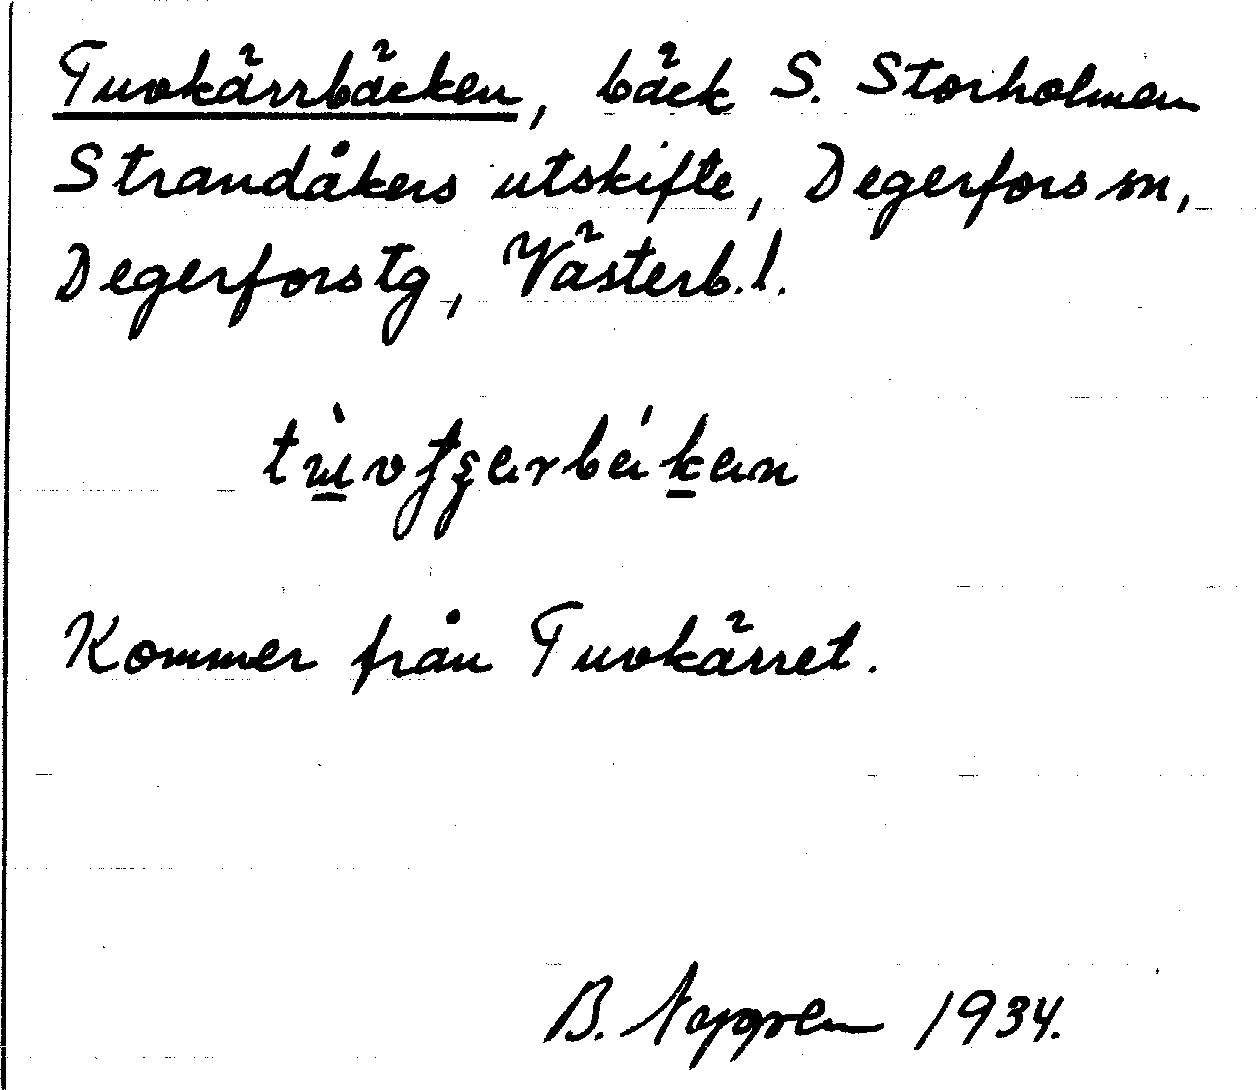 Tuvkärrbäcken, bäck S. Storholmen
Strandåkers utskifte, Degerfors sn,
Degerfors tg, Västerb.l.
Kommer från Tuvkärret.
B. Nygren 1934.